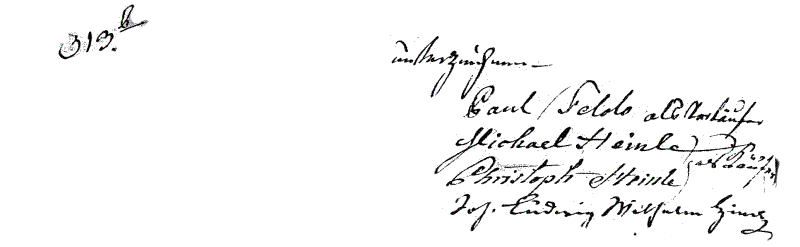 313.b
unterzeichnen
Paul Feldo als Verkäufer
Michael Heinle
Christoph Heinle als Käufer
Joh. Ludwig Wilhelm